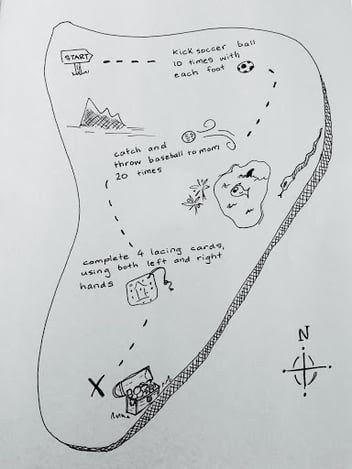 START
kick soccer ball
10 times with
each foot
catch and
throw baseball to mom
20 times
complete 4 lacing cards,
using both left and right
hands
X
N